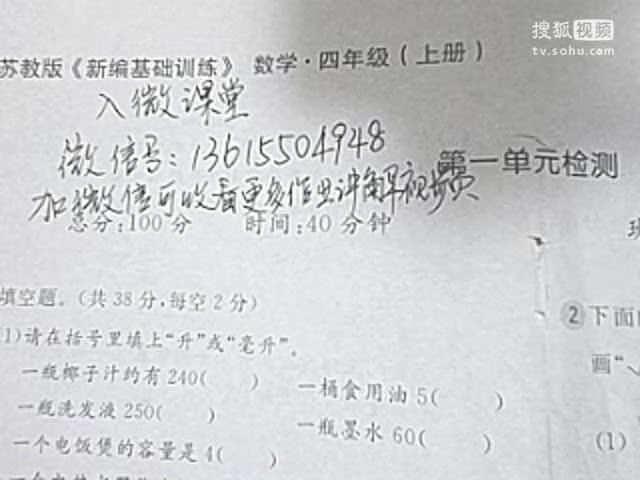 搜狐视频
tv.sohu.com
苏教版《新编基础训练》 数学·四年级(上册)
入微课堂
微信号:13615504948
第一单元检测
加微信可收看更多作业讲解视频
总分:100分 时间:40分钟
填空题。(共38分,每空2分)
1)请在括号里填上“升”或“毫升”。
一瓶椰子汁约有240( ) 一桶食用油5( )
一瓶洗发液250( ) 一瓶墨水60( )
一个电饭煲的容量是4( )
②下面
画“√
(1)